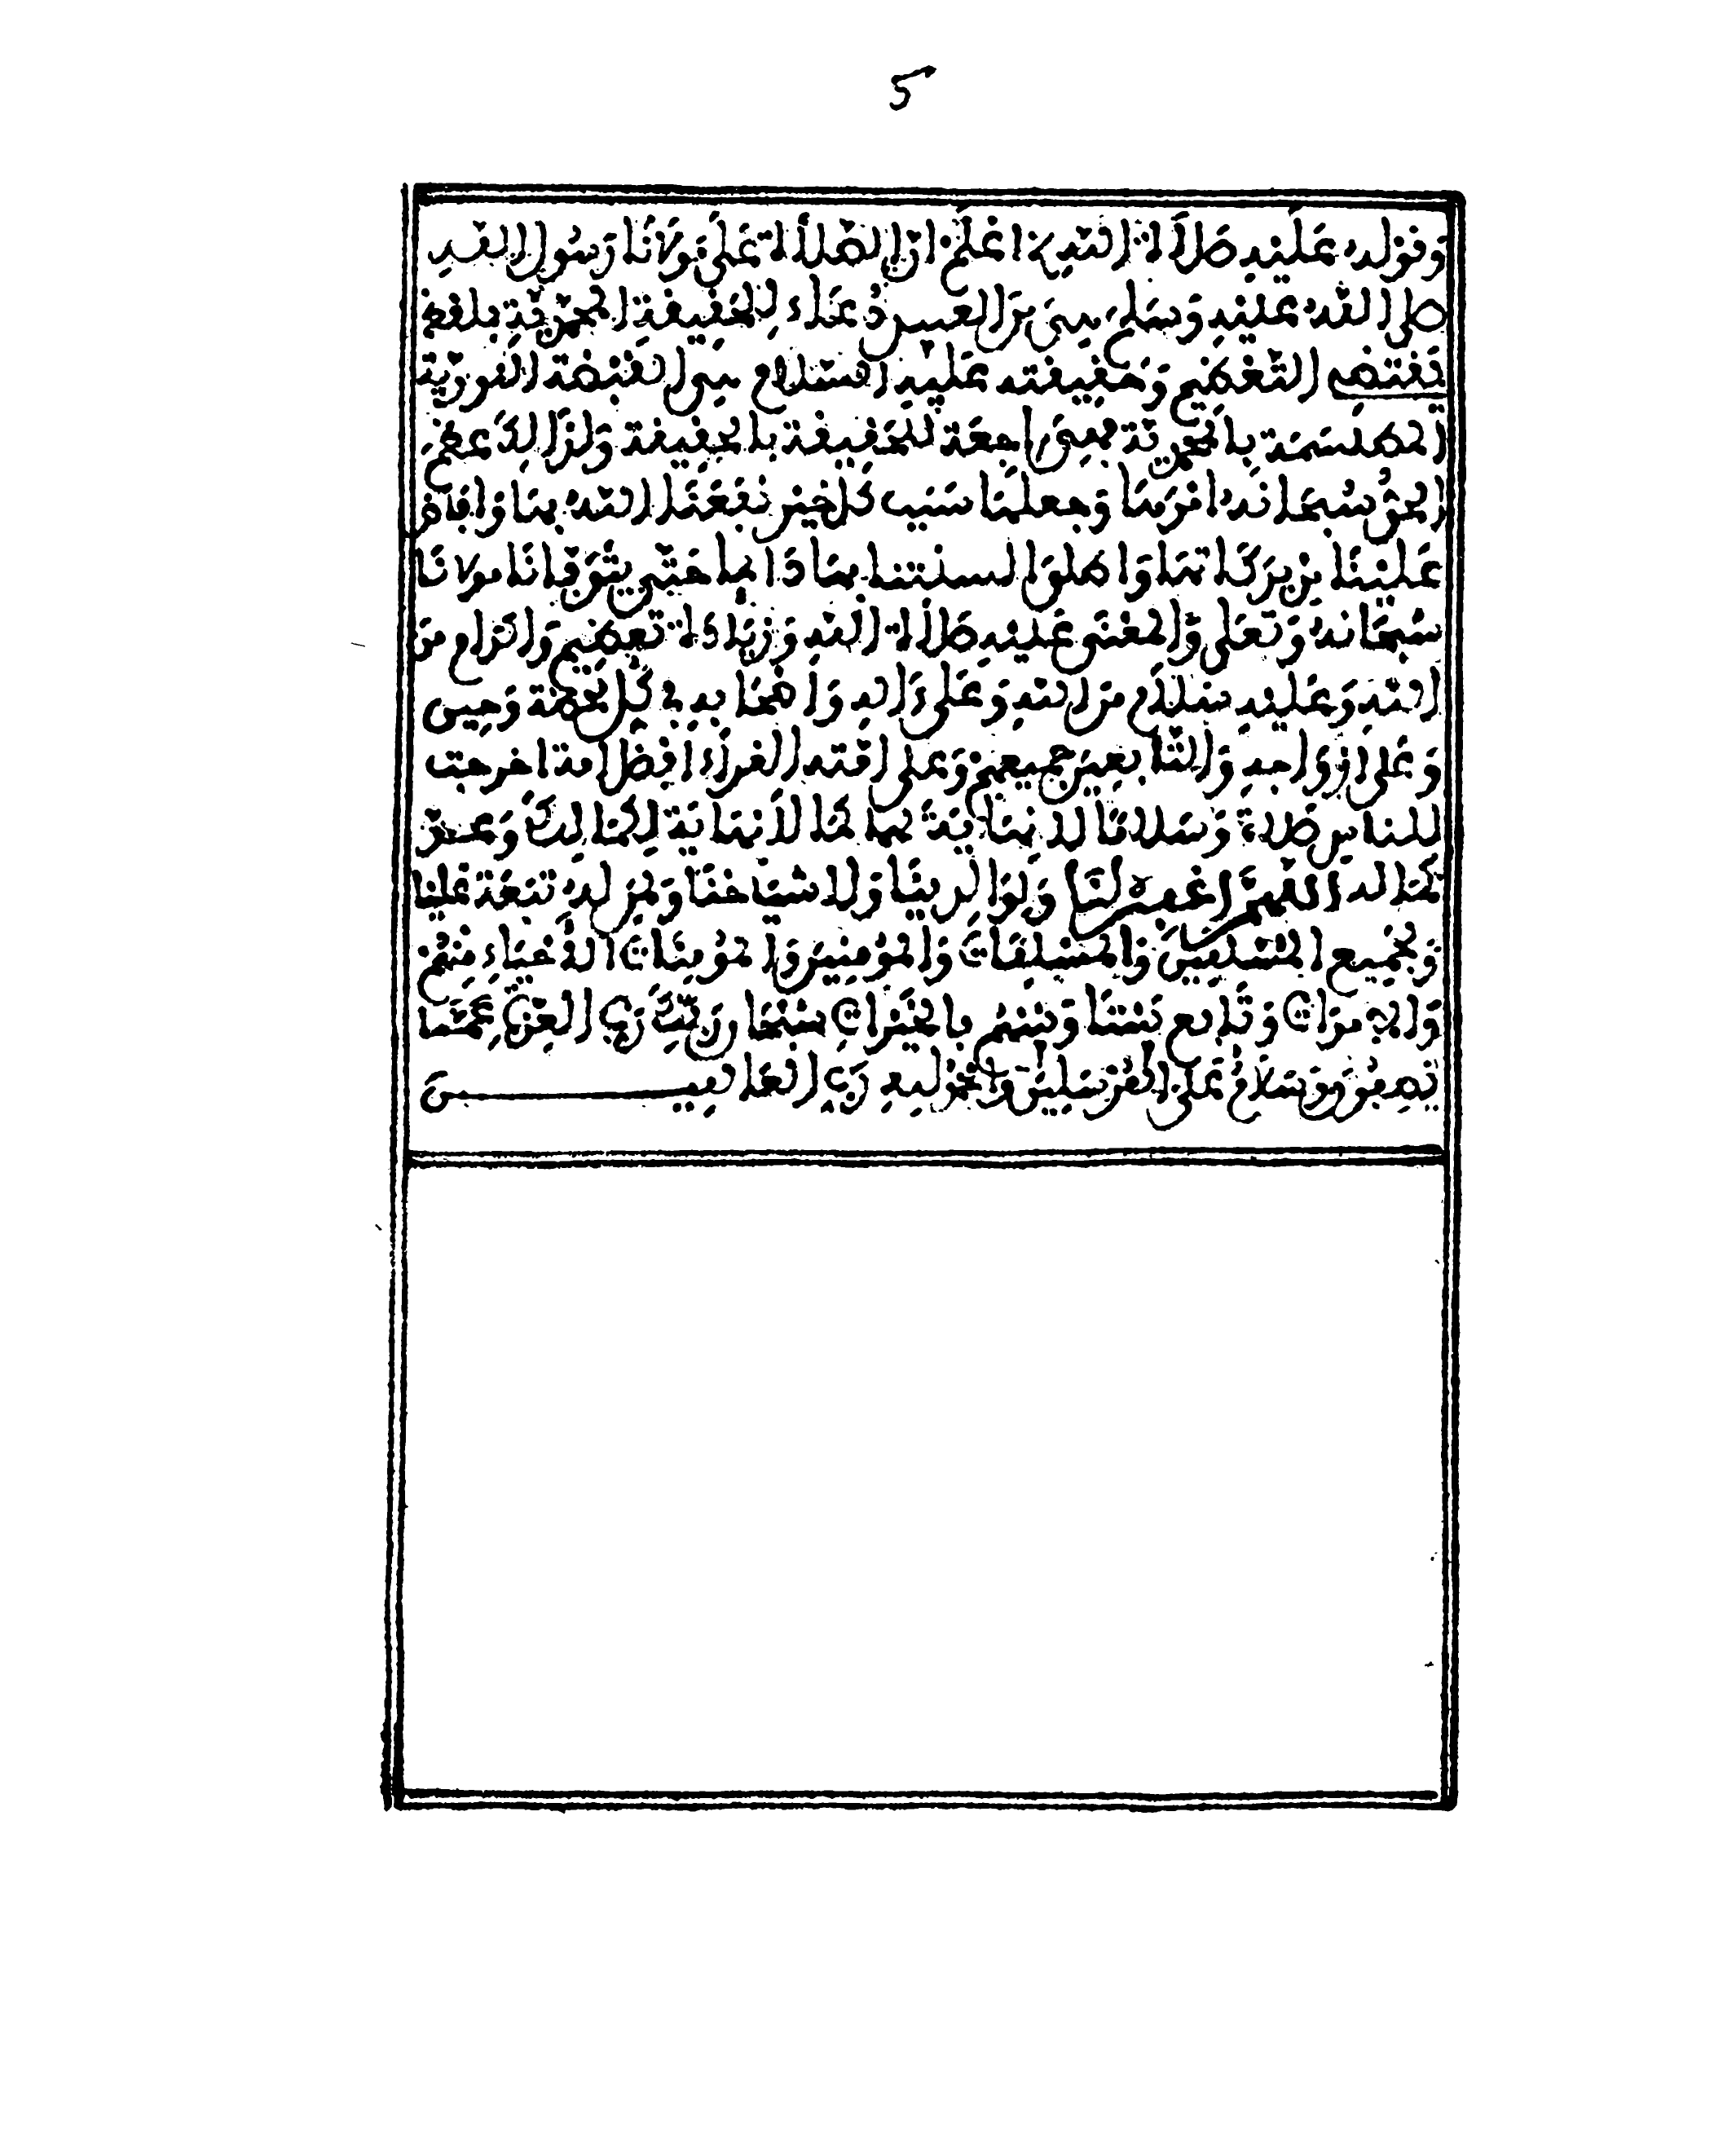 5
وقوله عليه صلاة الله اعلم ان الصلاة على مولانا رسول الله
صلى الله عليه وسلم هي من العبيد دعاء للحقيقة المحمدية بلفظ
يقتضي التعظيم وحقيقته عليه السلام هي القبضة النورية
المسمة بالمحمدية فهي راجعة للحقيقة بالحقيقة ولذلك عظم
الحق سبحانه امرها وجعلها سبب كل خير نفعنا الله بها وافاض
علينا من بركاتها واهلوا لسنتنا بها دائما حتى يتوفانا مولانا
سبحانه وتعلى والمعنى عليه صلاة الله وزيادة تعظيم واكرام من
الله وعليه سلام من الله وعلى ءاله واصحابه في كل لحظة وحين
وعلى ازواجه والتابعين جميعهم وعلى امته الغراء افضل امة اخرجت
للناس صلاة وسلاما لا نهاية لهما كما لا نهاية لكمالك وعد
كماله اللهم اغفر لنا ولوالدينا ولاشياخنا ولمن له تبعة علينا
ولجميع المسلمين والمسلمات والمومنين والمومنات الاحياء منهم
والاموات وتابع بيننا وبينهم بالخيرات سبحان ربك رب العزة عما
يصفون وسلام على المرسلين والحمد لله رب العالمين